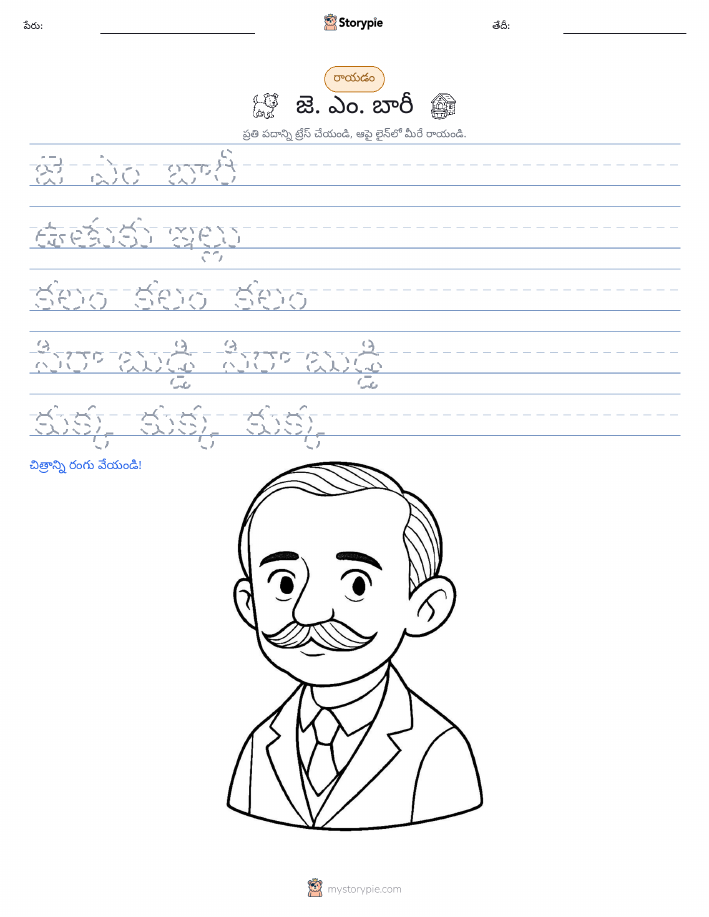 పేరు:
Storypie
తేదీ:
రాయడం
జె. ఎం. బారీ
ప్రతి పదాన్ని ట్రేస్ చేయండి, ఆపై లైన్‌లో మీరే రాయండి.
జె ఎం బారీ
ఊతుకు ఇల్లు
కలం కలం కలం
సిరా బుడ్డి సిరా బుడ్డి
కుక్క కుక్క కుక్క
చిత్రాన్ని రంగు వేయండి!
mystorypie.com